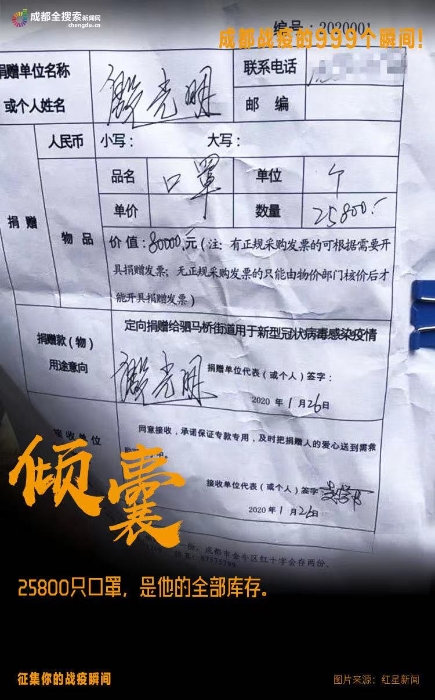 成都全搜索新闻网
zhengdu.cn
编号：2020001
成都战疫的999个瞬间！
捐赠单位名称
或个人姓名
联系电话
邮 编
光明
人民币 小写： 大写：
捐 赠
物 品
品名 口罩 单位 个
单价 数量 25800.
价 值：80000元（注：有正规采购发票的可根据需要开
具捐赠发票；无正规采购发票的只能由物价部门核价后才
能开具捐赠发票）
捐赠款（物）
用途意向
定向捐赠给驷马桥街道用于新型冠状病毒感染疫情
光明
捐赠单位代表（或个人）签字：
2020 年 1 月 26 日
接收单位
同意接收，承诺保证专款专用，及时把捐赠人的爱心送到需救
接收单位代表（或个人）签字
2020 年 1 月 26 日
份，成都市金牛区红十字会存两份。
倾囊
25800只口罩，是他的全部库存。
征集你的战疫瞬间
图片来源：红星新闻